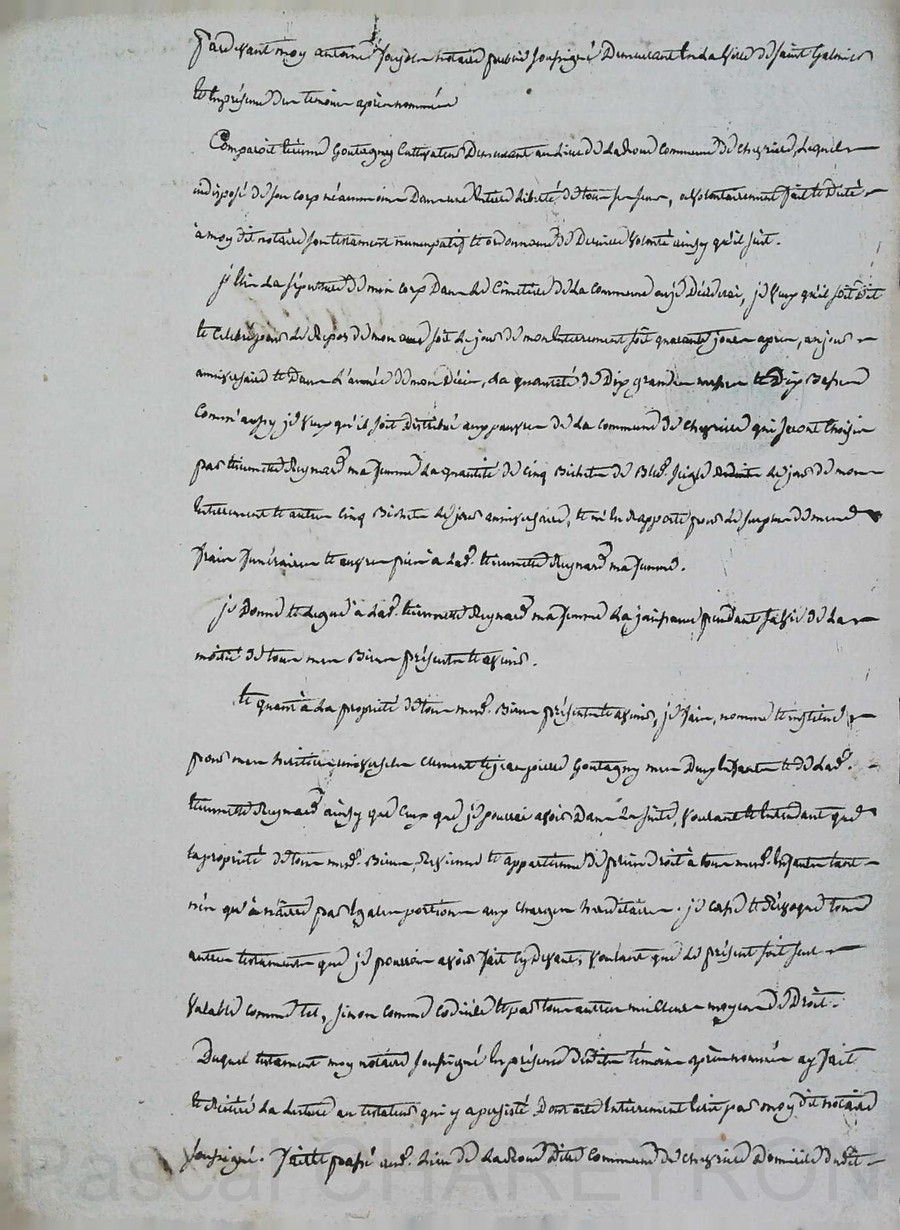 Pardevant moy antoine notaire public soussigné Demeurant en La Ville de saint Galmier
et en présence des temoins après nommés
Comparoit étienne Goutagny Cultivateur Demeurant au Lieu de Ladroud Commune de chevrier, Lequel
indisposé de son corp néanmoins Dans une entiere Liberté de tous ses sens, a volontairement fait et dicté
à moy dit notaire son testament nuncupatif et ordonnance de Derniere Volonté ainsy qu'il suit.
j'élis La sépulture de mon corp Dans Le Cimetiere de La Commune ou je Décéderai, je veux qu'il soit dit
et celebré pour Le Repos de mon ame soit Le jour de mon enterrement soit quarante jours après, au jour
anniversaire et Dans L'année de mon Décès, La quantité de Dix grandes messes et Dix Basses
Comm'aussy je veux qu'il soit Distribué aux pauvres de La commune de chevrier qui seront choisis
par étiennette Reynard ma femme La quantité de cinq Bichets de Bled seigle Le jour de mon
enterrement et autres cinq Bichets Le jour anniversaire, et m'en Rapporte pour Le surplus de mes
frais funéraires et œuvres pies à Lad. étiennette Reynard ma femme.
je Donne et Legue à Lad. étiennette Reynard ma femme La jouissance pendant sa vie de La
moitié de tous mes Biens présents et avenir.
et quant à La propriété de tous mesd. Biens présents et avenir, je fais, nomme et institue
pour mes héritiers universels Clement et jean pierre Goutagny mes Deux enfants et de Lad.
étiennette Reynard ainsy que Ceux que je pourrai avoir Dans La suite, voulant et entendant que
La propriété de tous mesd. Biens, Revienne et appartienne de plein Droit à tous mesd. enfants tant
nés qu'à naitre par égales portions aux charges héréditaires. je casse et Révoque tous
autres testaments que je pourrois avoir fait cy devant, voulant que Le présent soit seul
Valable comme tel, sinon comme codicile et par tous autres meilleurs moyens de Droit.
Duquel testament moy notaire soussigné en présence desdits témoins après nommés ay fait
et Réitéré La Lecture au testateur qui y a persisté Dont acte entierement écrit par moy dit notaire
soussigné. fait et passé aud. Lieu de Ladroud Dite Commune de chevrier Domicile dudit
Pascal CHAREYRON